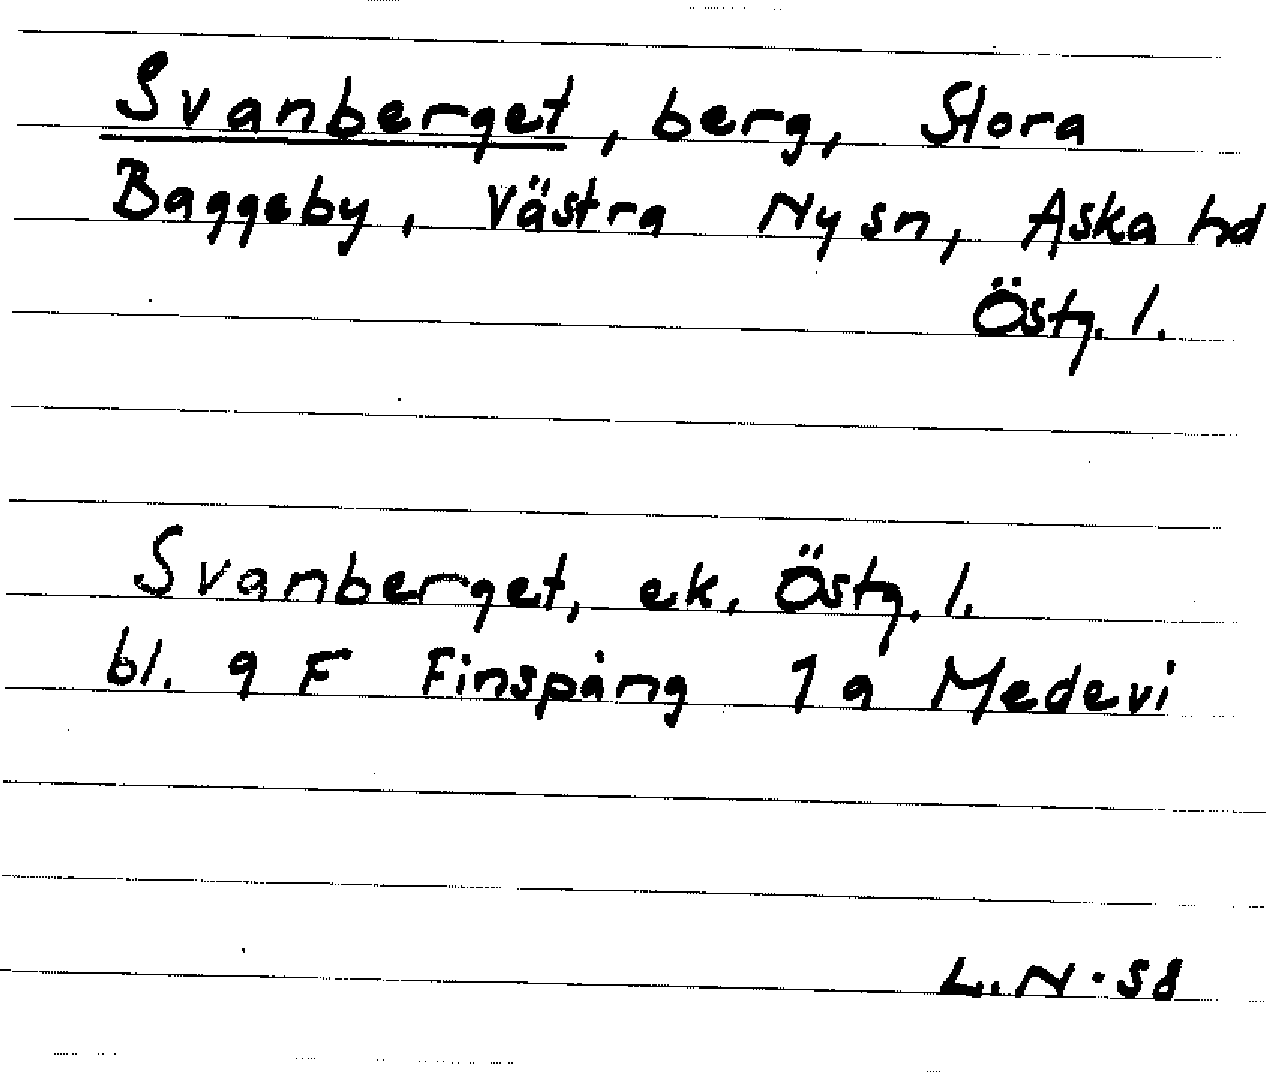 Svanberget, berg, Stora
Baggeby, Västra Ny sn, Aska hd
Östg. l.
Svanberget, ek. Östg. l.
bl. 9 F Finspång 1 a Medevi
L. N. 58